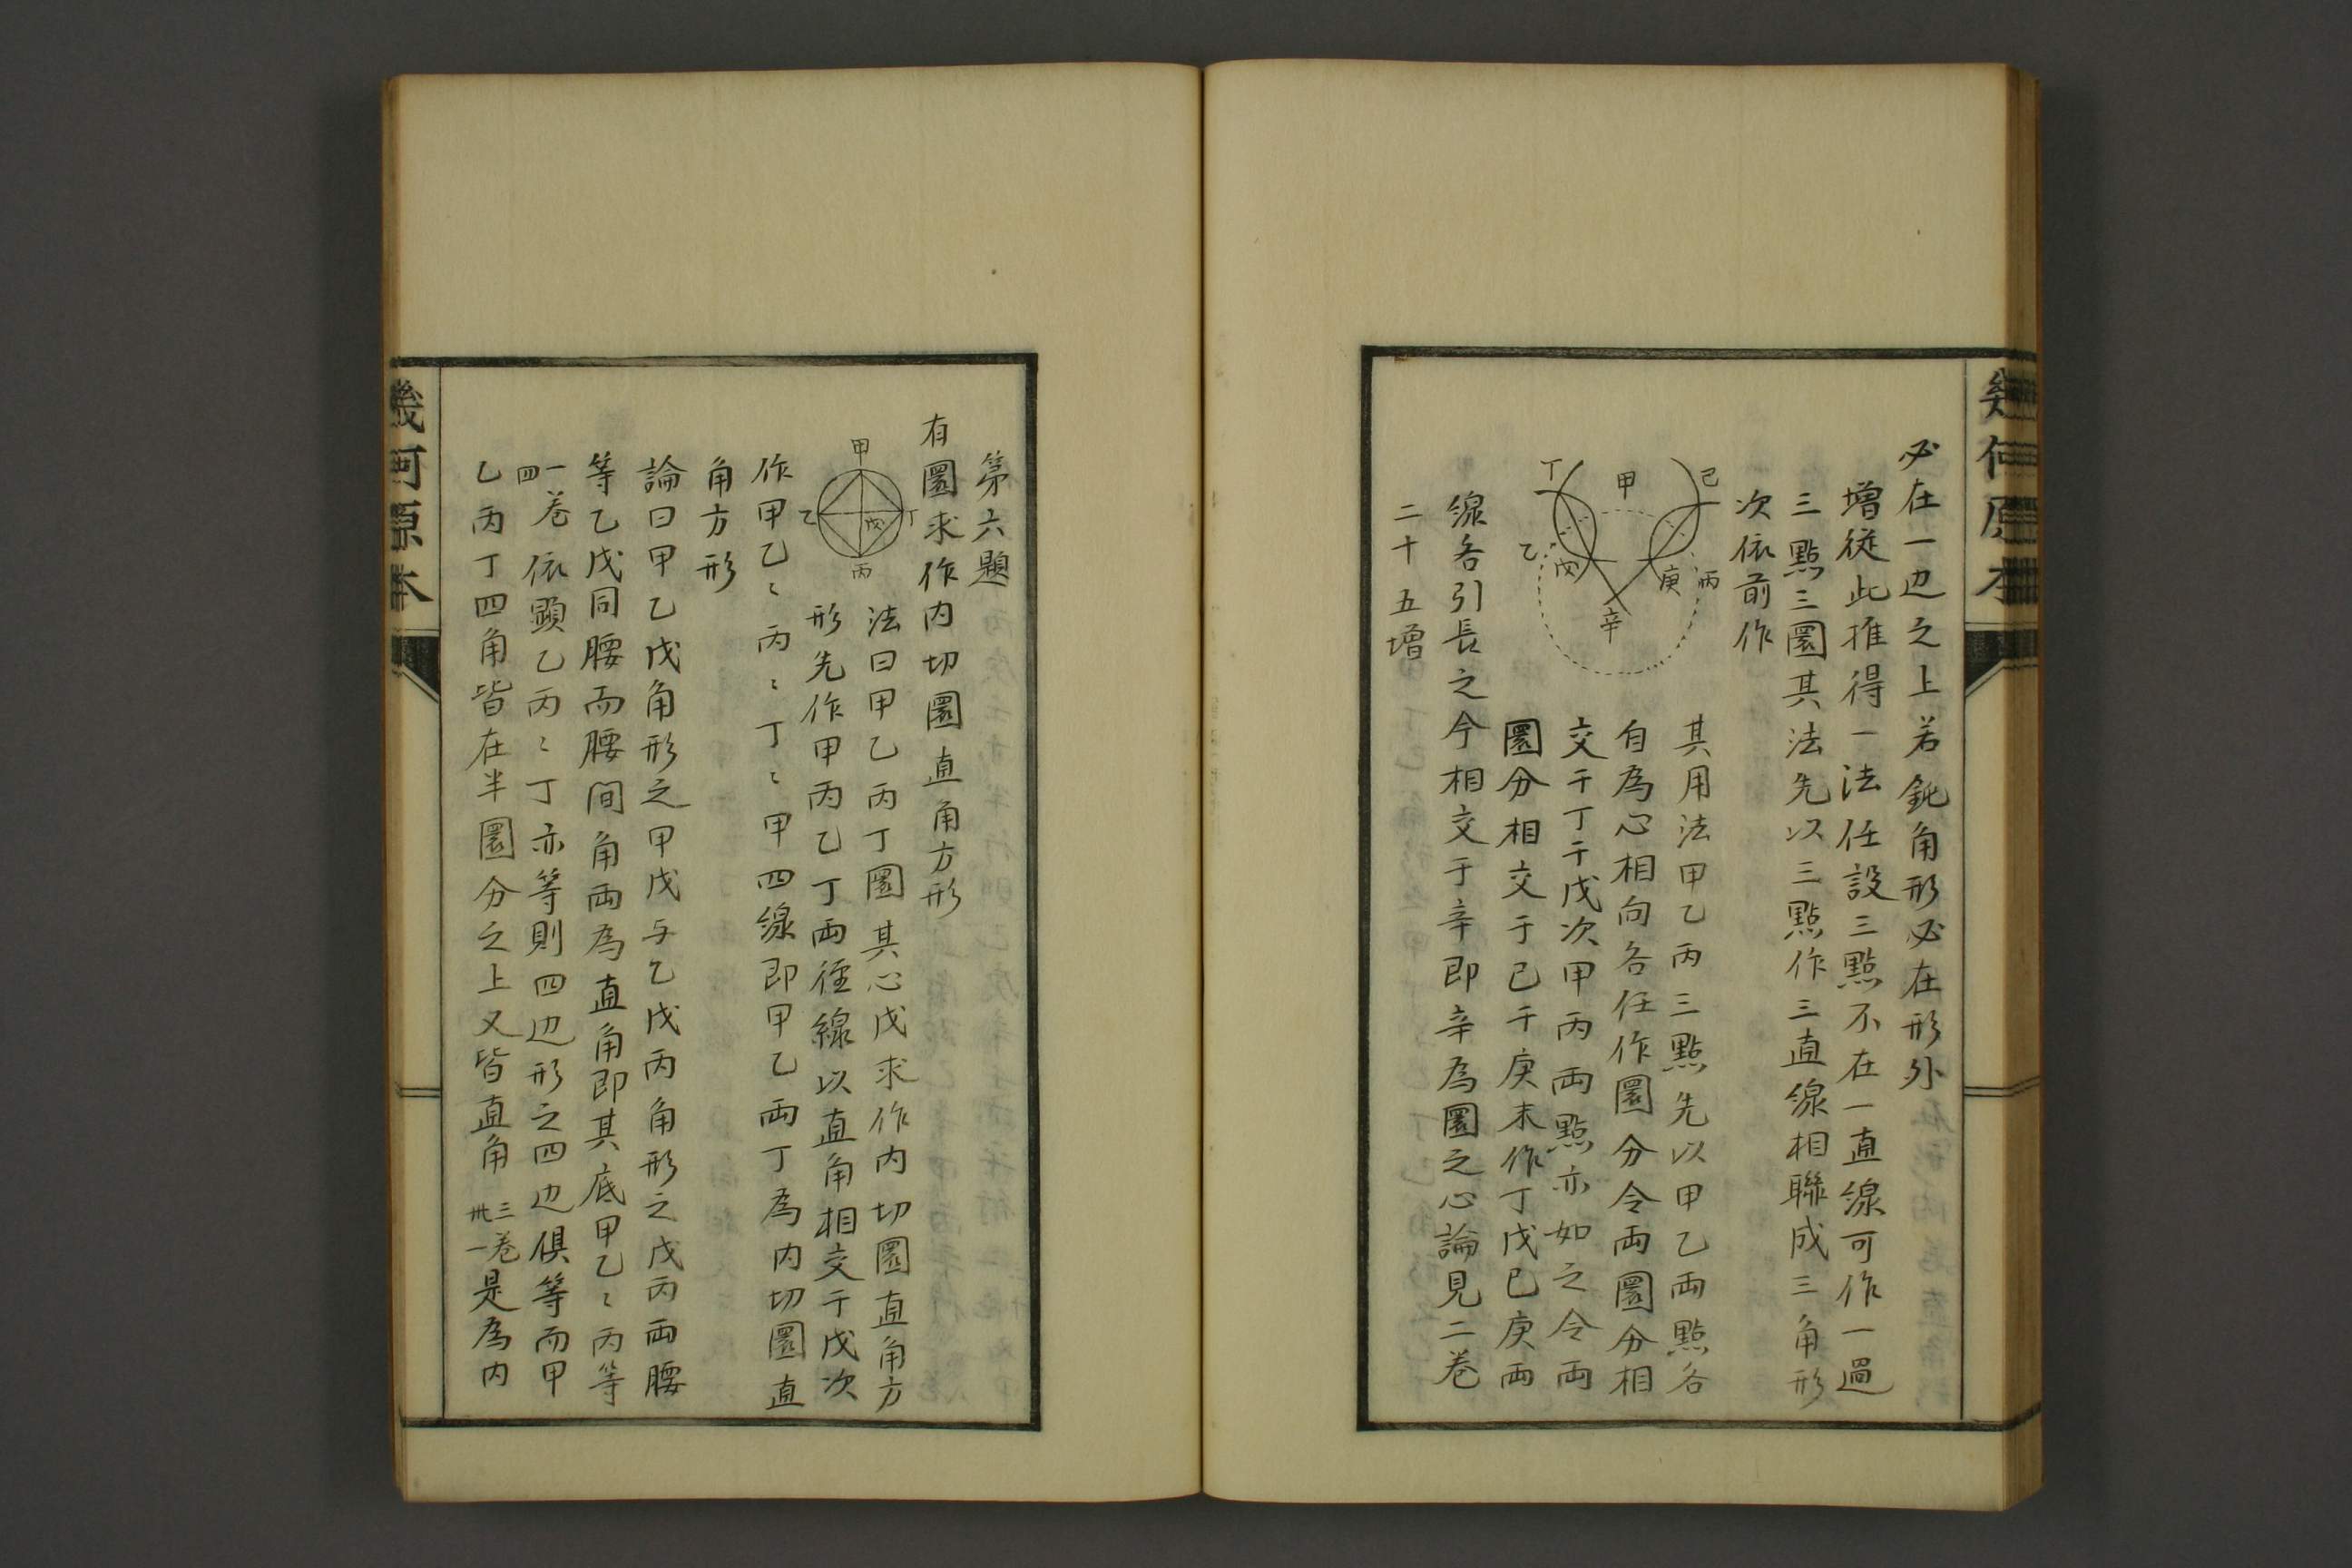 幾何原本
必在一边之上若鈍角形必在形外
增從此推得一法任設三點不在一直線可作一過
三點三圜其法先以三點作三直線相聯成三角形
次依前作
己
甲
丁
丙
庚
戊
乙
辛
其用法甲乙丙三點先以甲乙両點各
自為心相向各任作圜分令両圜分相
交于丁于戊次甲丙両點亦如之令両
圜分相交于已于庚末作丁戊已庚両
線各引長之令相交于辛即辛為圜之心論見二卷
二十五增
第六題
有圜求作内切圜直角方形
甲
丁
戊
乙
丙
法曰甲乙丙丁圜其心戊求作内切圜直角方
形先作甲丙乙丁両徑線以直角相交于戊次
作甲乙〻丙〻丁〻甲四線即甲乙両丁為内切圜直
角方形
論曰甲乙戊角形之甲戊与乙戊丙角形之戊丙両腰
等乙戊同腰而腰間角両為直角即其底甲乙〻丙等
一卷四依顕乙丙〻丁亦等則四边形之四边俱等而甲
乙丙丁四角皆在半圜分之上又皆直角三卷卅一是為内
幾何原本